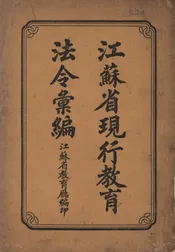 江蘇省現行教育
法令彙編
江蘇省教育廳編印